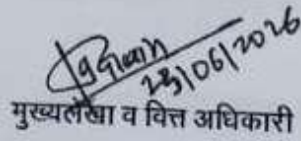 23/06/2026
मुख्यलेखा व वित्त अधिकारी